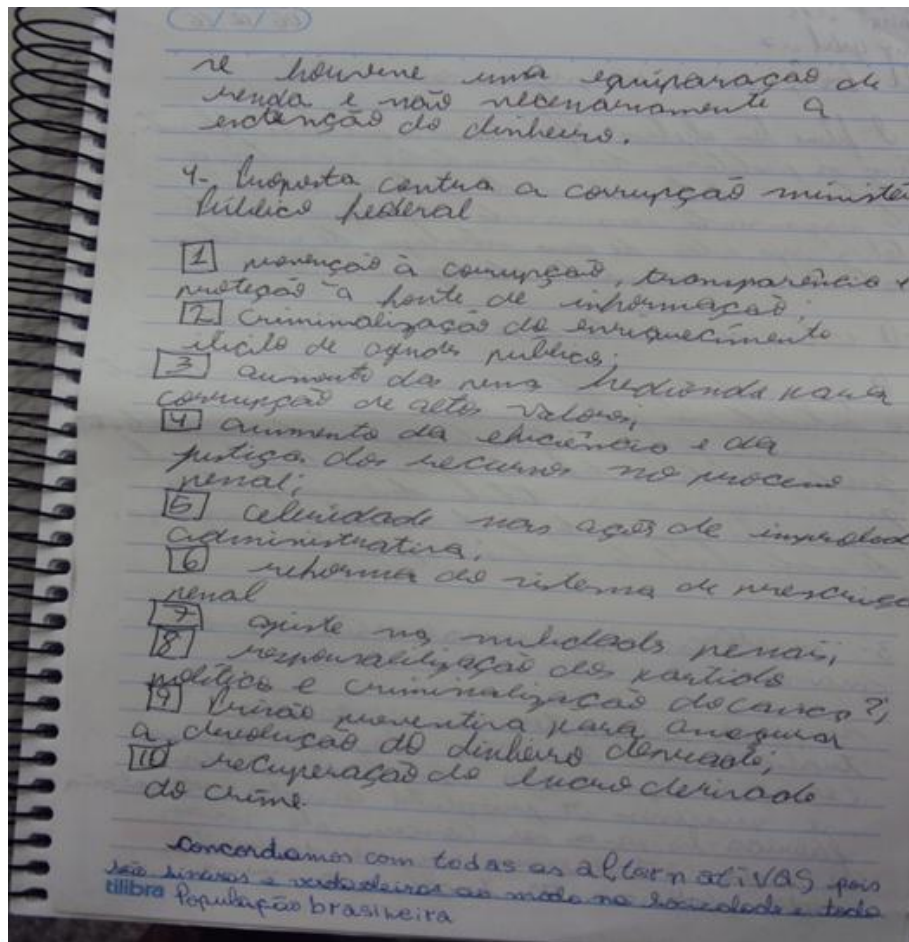 se houvesse uma equiparação de
renda e não necessariamente a
extenção do dinheiro.
4- Proposta contra a corrupção ministé
Público federal
1 prevenção à corrupção, transparência e
proteção a fonte de informação;
2 criminalização do enriquecimento
ilicito de agentes publicos;
3 aumento das pena hedionda para
corrupção de altos valores;
4 aumento da eficiência e da
justiça dos recursos no processo
penal;
5 celeridade nas ações de improbidad
administrativa;
6 reforma do sistema de prescriçã
penal
7 ajuste nas nulidades penais;
8 responsabilização dos partido
político e criminalização do caixa 2;
9 Prisão preventiva para assegurar
a devolução do dinheiro desviado;
10 recuperação do lucro derivado
do crime.
concordamos com todas as alternativas pois
são e verdadeiras ao modo na sociedade e toda
tilibra População brasileira